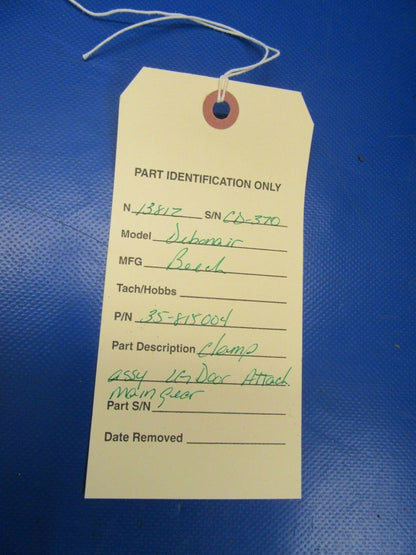 PART IDENTIFICATION ONLY
N 13817 S/N CD-370
Model Debonair
MFG Beech
Tach/Hobbs
P/N 35-815004
Part Description Clamp
assy LG Door Attach
main gear
Part S/N
Date Removed